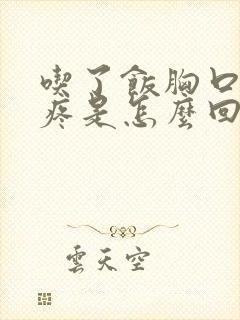 喫了飯胸口
疼是怎麼回
雲天空